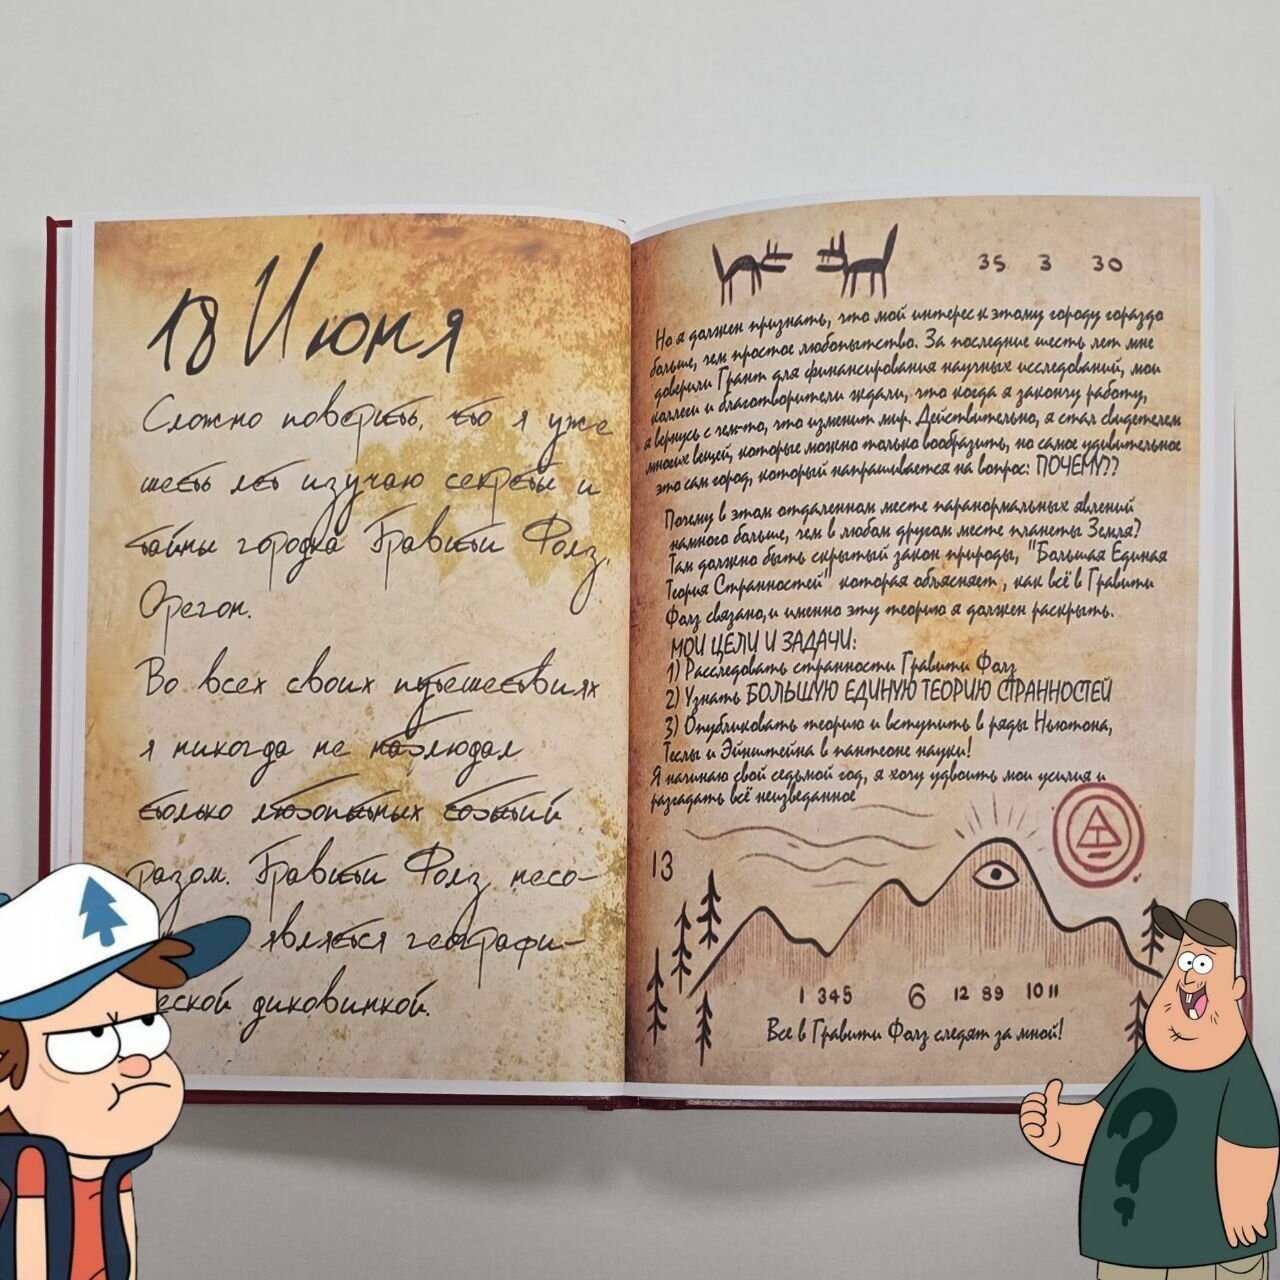 18 Июня
Сложно поверить, что я уже
шесть лет изучаю секреты и
тайны городка Гравити Фолз,
Орегон.
Во всех своих путешествиях
я никогда не наблюдал
столько любопытных событий
разом. Гравити Фолз несо-
является географи-
еской диковинкой.
35 3 30
Но я должен признать, что мой интерес к этому городу гораздо
больше, чем простое любопытство. За последние шесть лет мне
доверили Грант для финансирования научных исследований, мои
коллеги и благотворители ждали, что когда я закончу работу,
я вернусь с чем-то, что изменит мир. Действительно, я стал свидетелем
многих вещей, которые можно только вообразить, но самое удивительное
это сам город, который напрашивается на вопрос: ПОЧЕМУ??
Почему в этом отдаленном месте паранормальных явлений
намного больше, чем в любом другом месте планеты Земля?
Там должно быть скрытый закон природы, "Большая Единая
Теория Странностей" которая объясняет, как всё в Гравити
Фолз связано, и именно эту теорию я должен раскрыть.
МОИ ЦЕЛИ И ЗАДАЧИ:
1) Расследовать странности Гравити Фолз
2) Узнать БОЛЬШУЮ ЕДИНУЮ ТЕОРИЮ СТРАННОСТЕЙ
3) Опубликовать теорию и вступить в ряды Ньютона,
Теслы и Эйнштейна в пантеоне науки!
Я начинаю свой седьмой год, я хочу удвоить мои усилия и
разгадать всё неизведанное
13
1 345 6 12 89 10 11
Все в Гравити Фолз следят за мной!
?